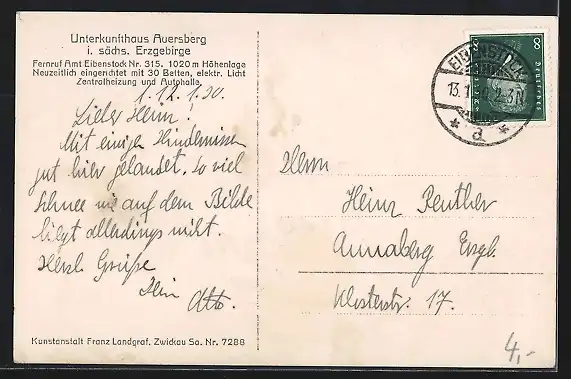 Unterkunfthaus Auersberg
i. sächs. Erzgebirge
Fernruf Amt Eibenstock Nr. 315. 1020 m Höhenlage
Neuzeitlich eingerichtet mit 30 Betten, elektr. Licht
Zentralheizung und Autohalle.
Lieber Heinz!
Mit einigen Hindernissen
gut hier gelandet. So viel
Schnee wie auf dem Bilde
liegt allerdings nicht.
Herzl. Grüße
Dein
Otto.
Kunstanstalt Franz Landgraf. Zwickau Sa. Nr. 7288
8 8
Deutsches
EIBENSTOCK
* a *
Herrn
Heinz Reuther
Annaberg Erzgb.
Klosterstr. 17.
4,-